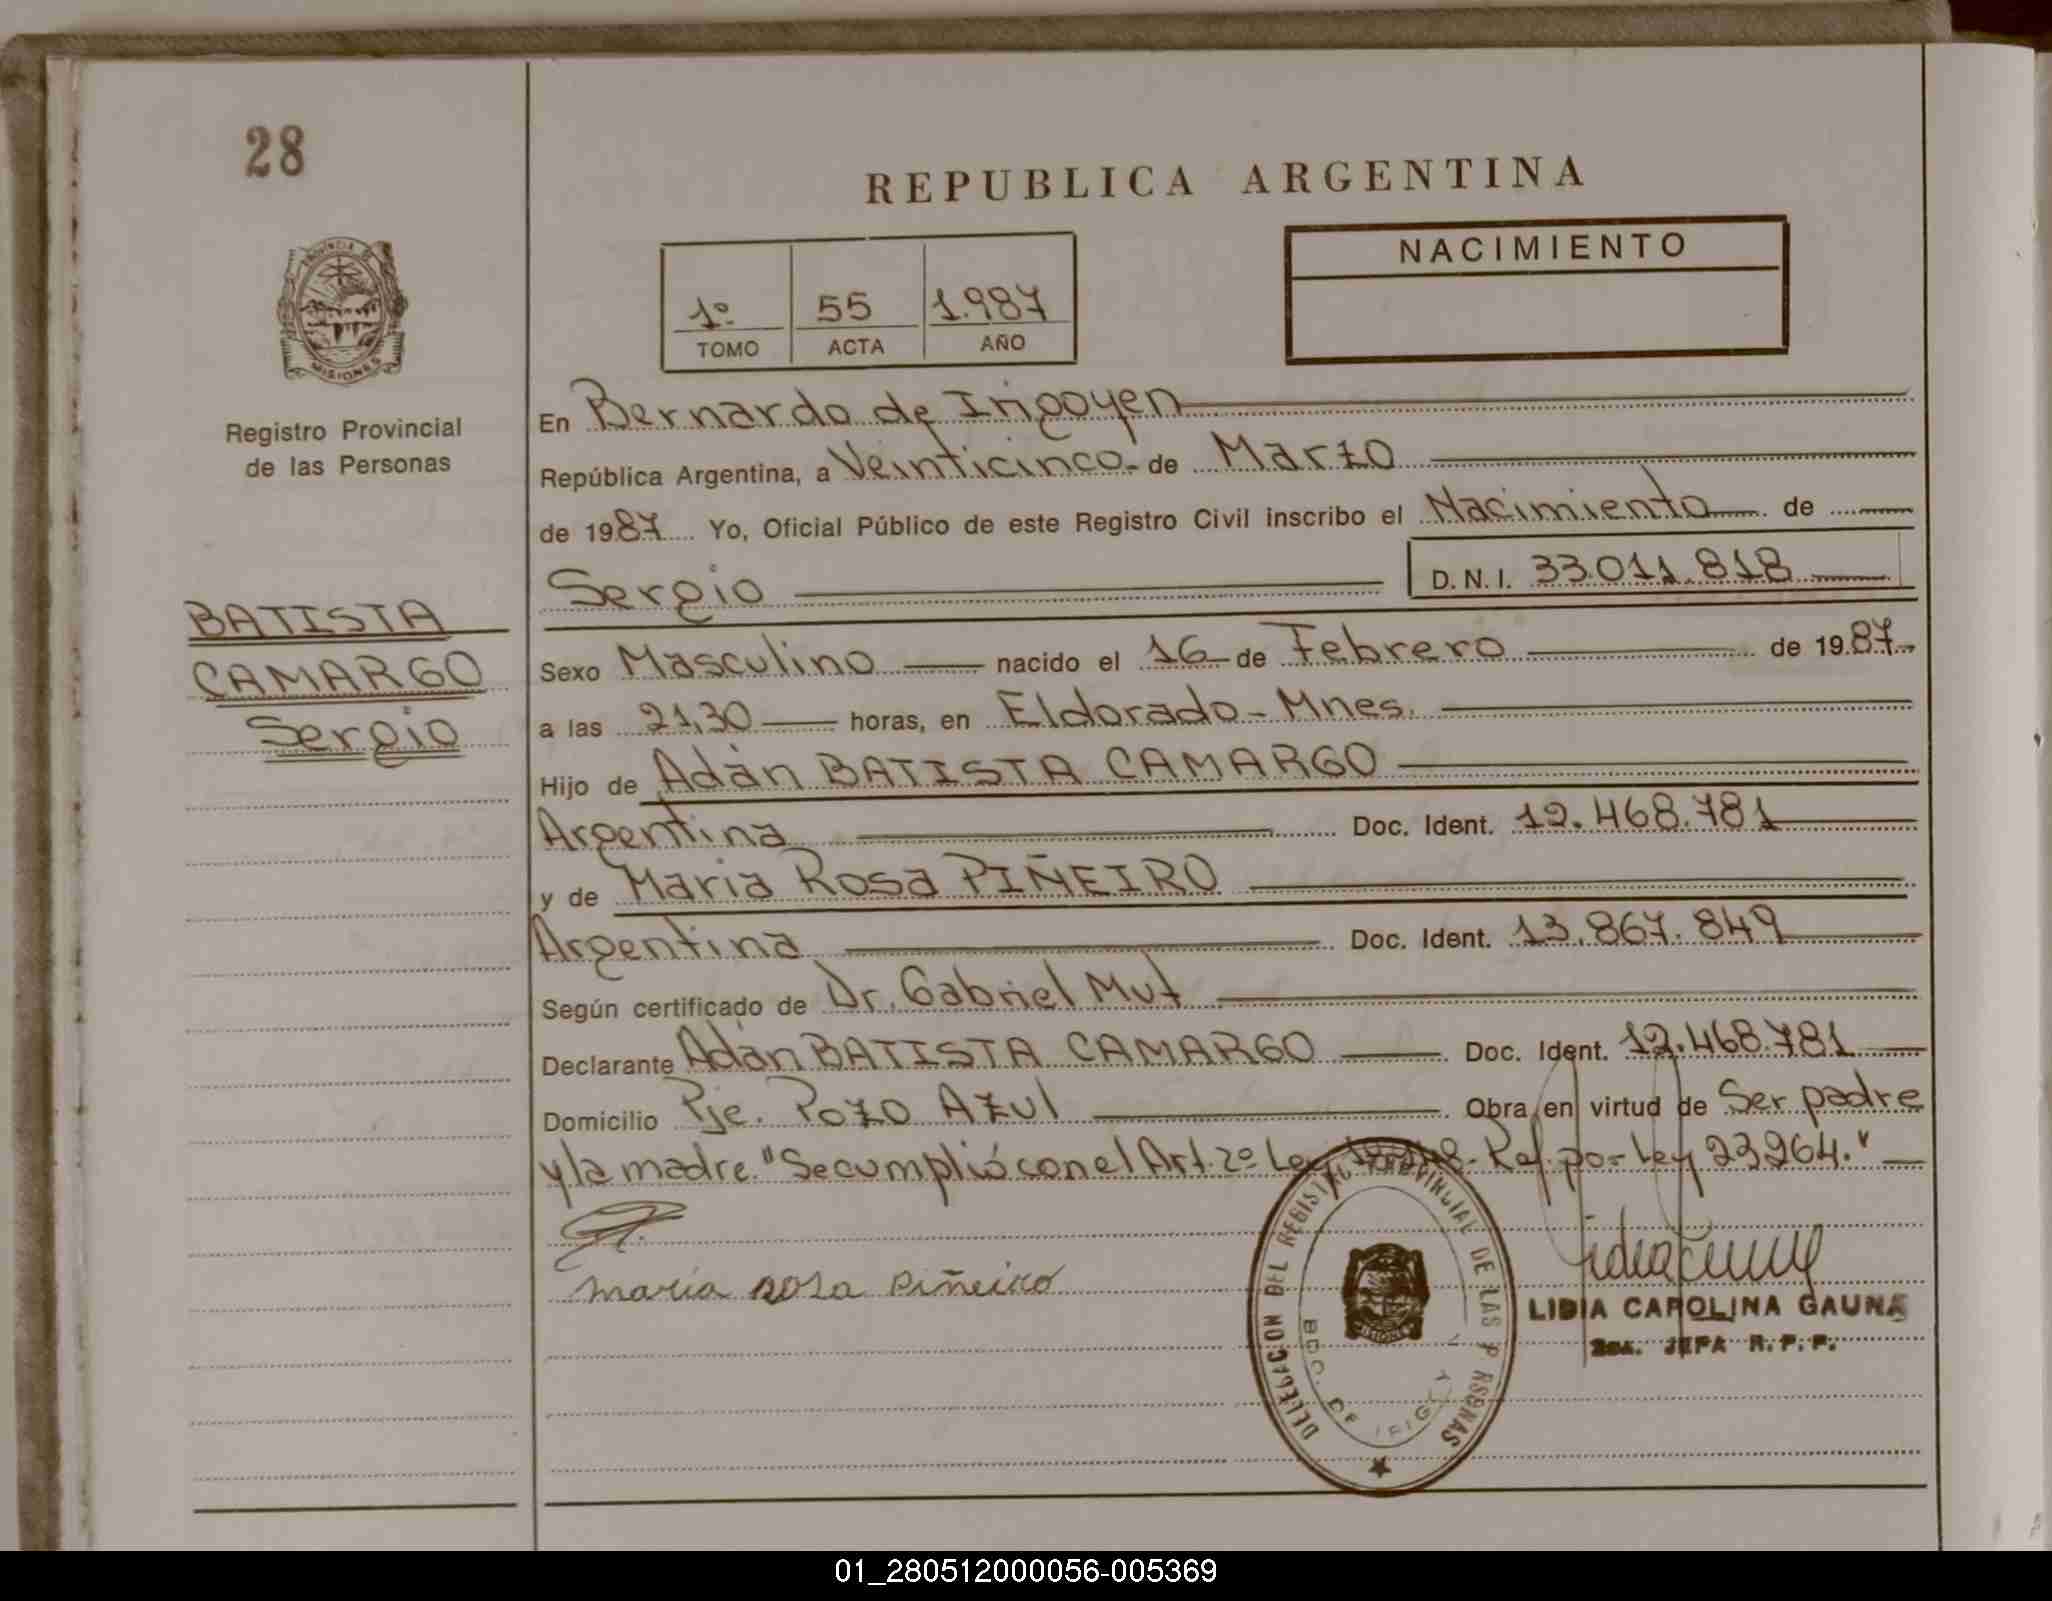 28
REPUBLICA ARGENTINA
NACIMIENTO
1º 55 1.987
TOMO ACTA AÑO
PROVINCIA DE
MISIONES
Registro Provincial
de las Personas
BATISTA
CAMARGO
Sergio
En Bernardo de Irigoyen
República Argentina, a Veinticinco de Marzo
de 1987 Yo, Oficial Público de este Registro Civil inscribo el Nacimiento de
Sergio D.N.I. 33.011.818
Sexo Masculino nacido el 16 de Febrero de 1987
a las 21,30 horas, en Eldorado - Mnes.
Hijo de Adán BATISTA CAMARGO
Argentina Doc. Ident. 12.468.781
y de Maria Rosa PIÑEIRO
Argentina Doc. Ident. 13.867.849
Según certificado de Dr. Gabriel Mut
Declarante Adán BATISTA CAMARGO Doc. Ident. 12.468.781
Domicilio Pje. Pozo Azul Obra en virtud de Ser padre
y la madre "Se cumplió con el Art. 2º Ley Ref. por Ley 23264."
maria rosa Piñeiro
DELEGACION DEL REGISTRO PROVINCIAL DE LAS P RSONAS
BDO. DE IRIGOY
MISIONES
LIDIA CAROLINA GAUNA
2DA. JEFA R.P.P.
01_280512000056-005369